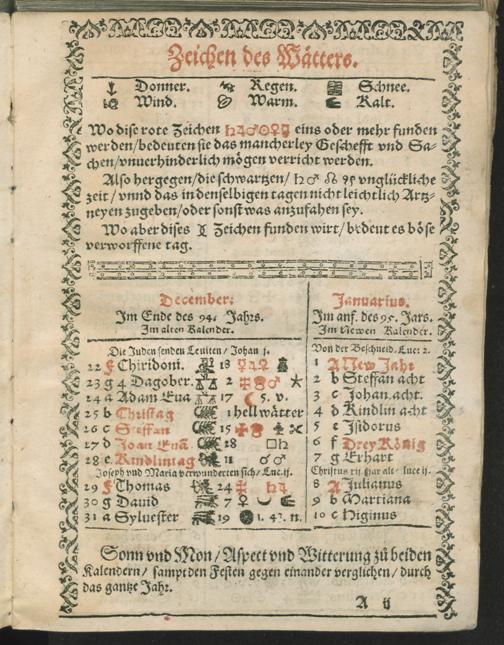 Zeichen des Wätters.
Donner. Regen. Schnee.
Wind. Warm. Kalt.
Wo dise rote Zeichen ♄♃♂☉♀☿ eins oder mehr funden
werden/ bedeuten sie das mancherley Geschefft vnd Sa-
chen/ vnuerhinderlich mögen verricht werden.
Also hergegen/ die schwartzen/ ♄♂ ☊ vnglückliche
zeit/ vnnd das in denselbigen tagen nicht leichtlich Artz-
neyen zugeben/ oder sonst was anzufahen sey.
Wo aber dises Zeichen funden wirt/ bedeut es böse
verworffene tag.
December:
Im Ende des 94. Jahrs.
Im alten Kalender.
Die Juden senden Leuiten/ Johan j.
22 f Chiridoni. 18
23 g 4 Dagober. 2
24 a Adam Eua 17 5. v.
25 b Christag 1 hell wätter
26 c Steffan 15
27 d Joan Euā 18 □♄
28 e Kindlintag 11 ☌♂
Joseph vnd Maria verwunderten sich/ Luc. ij.
29 f Thomas 24
30 g Dauid 7
31 a Syluester 19 1. 43. n.
Januarius.
Im anf. des 95. Jars.
Im Newen Kalender.
Von der Beschneid. Luc: 2.
1 A New Jahr
2 b Steffan acht
3 c Johan. acht.
4 d Kindlin acht
5 e Isidorus
6 f Drey König
7 g Erhart
Christus xij. har alt. luce ij.
8 A Julianus
9 b Martiana
10 c Higinus
Sonn vnd Mon/ Aspect vnd Witterung zů beiden
Kalendern/ sampt den Festen gegen einander verglichen/ durch
das gantze Jahr.
A ij